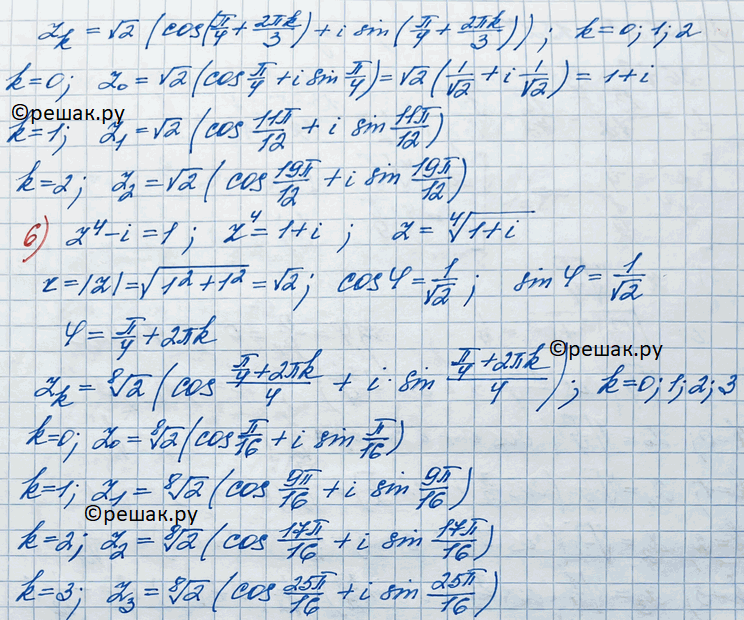 z_k = √2 (cos(π/4 + 2πk/3) + i sin (π/4 + 2πk/3)); k=0; 1; 2
k=0; z_0 = √2 (cos π/4 + i sin π/4) = √2 (1/√2 + i 1/√2) = 1+i
©решак.ру
k=1; z_1 = √2 (cos 11π/12 + i sin 11π/12)
k=2; z_2 = √2 (cos 19π/12 + i sin 19π/12)
б) z^4 - i = 1; z^4 = 1+i; z = ∜(1+i)
r = |z| = √(1^2 + 1^2) = √2; cos φ = 1/√2; sin φ = 1/√2
φ = π/4 + 2πk
©решак.ру
z_k = ⁸√2 (cos (π/4 + 2πk)/4 + i · sin (π/4 + 2πk)/4); k=0; 1; 2; 3
k=0; z_0 = ⁸√2 (cos π/16 + i sin π/16)
k=1; z_1 = ⁸√2 (cos 9π/16 + i sin 9π/16)
©решак.ру
k=2; z_2 = ⁸√2 (cos 17π/16 + i sin 17π/16)
k=3; z_3 = ⁸√2 (cos 25π/16 + i sin 25π/16)